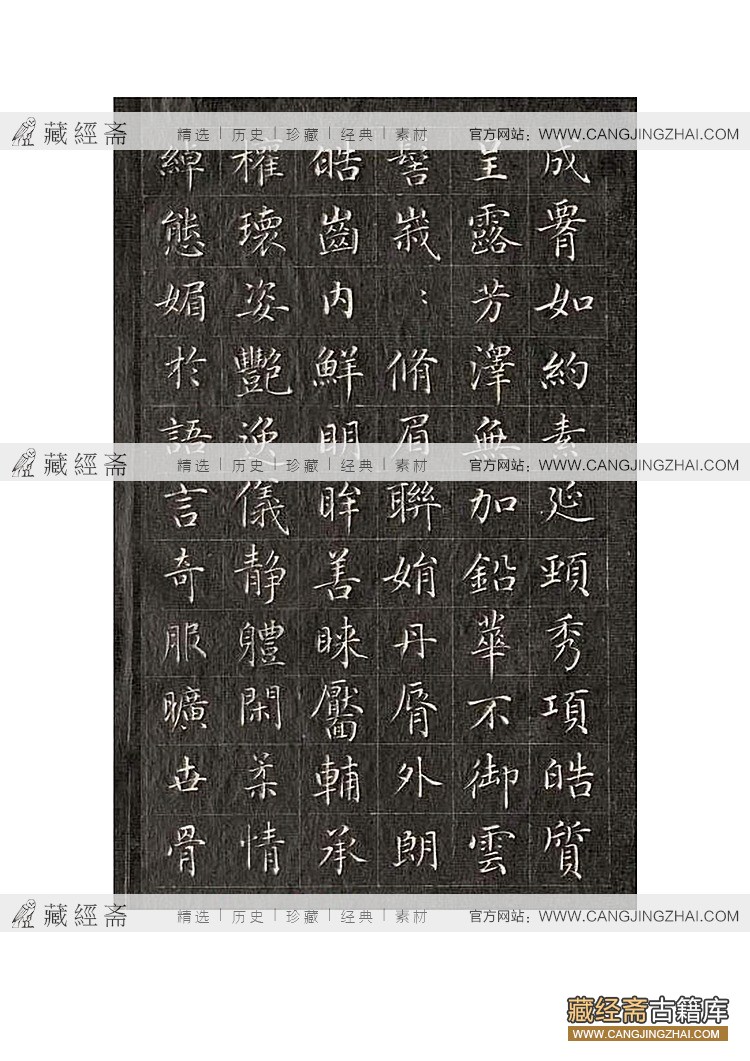 成䏏如約素延頸秀項皓質
呈露芳澤無加鉛華不御雲
髻峩〻脩眉聯娟丹脣外朗
皓齒内鮮明眸善睞靨輔承
權瓌姿艷逸儀静軆閑柔情
綽態媚於語言奇服曠世骨
藏經斋 精选 | 历史 | 珍藏 | 经典 | 素材 官方网站：WWW.CANGJINGZHAI.COM
藏經斋 精选 | 历史 | 珍藏 | 经典 | 素材 官方网站：WWW.CANGJINGZHAI.COM
藏經斋 精选 | 历史 | 珍藏 | 经典 | 素材 官方网站：WWW.CANGJINGZHAI.COM
藏经斋古籍库
WWW.CANGJINGZHAI.COM